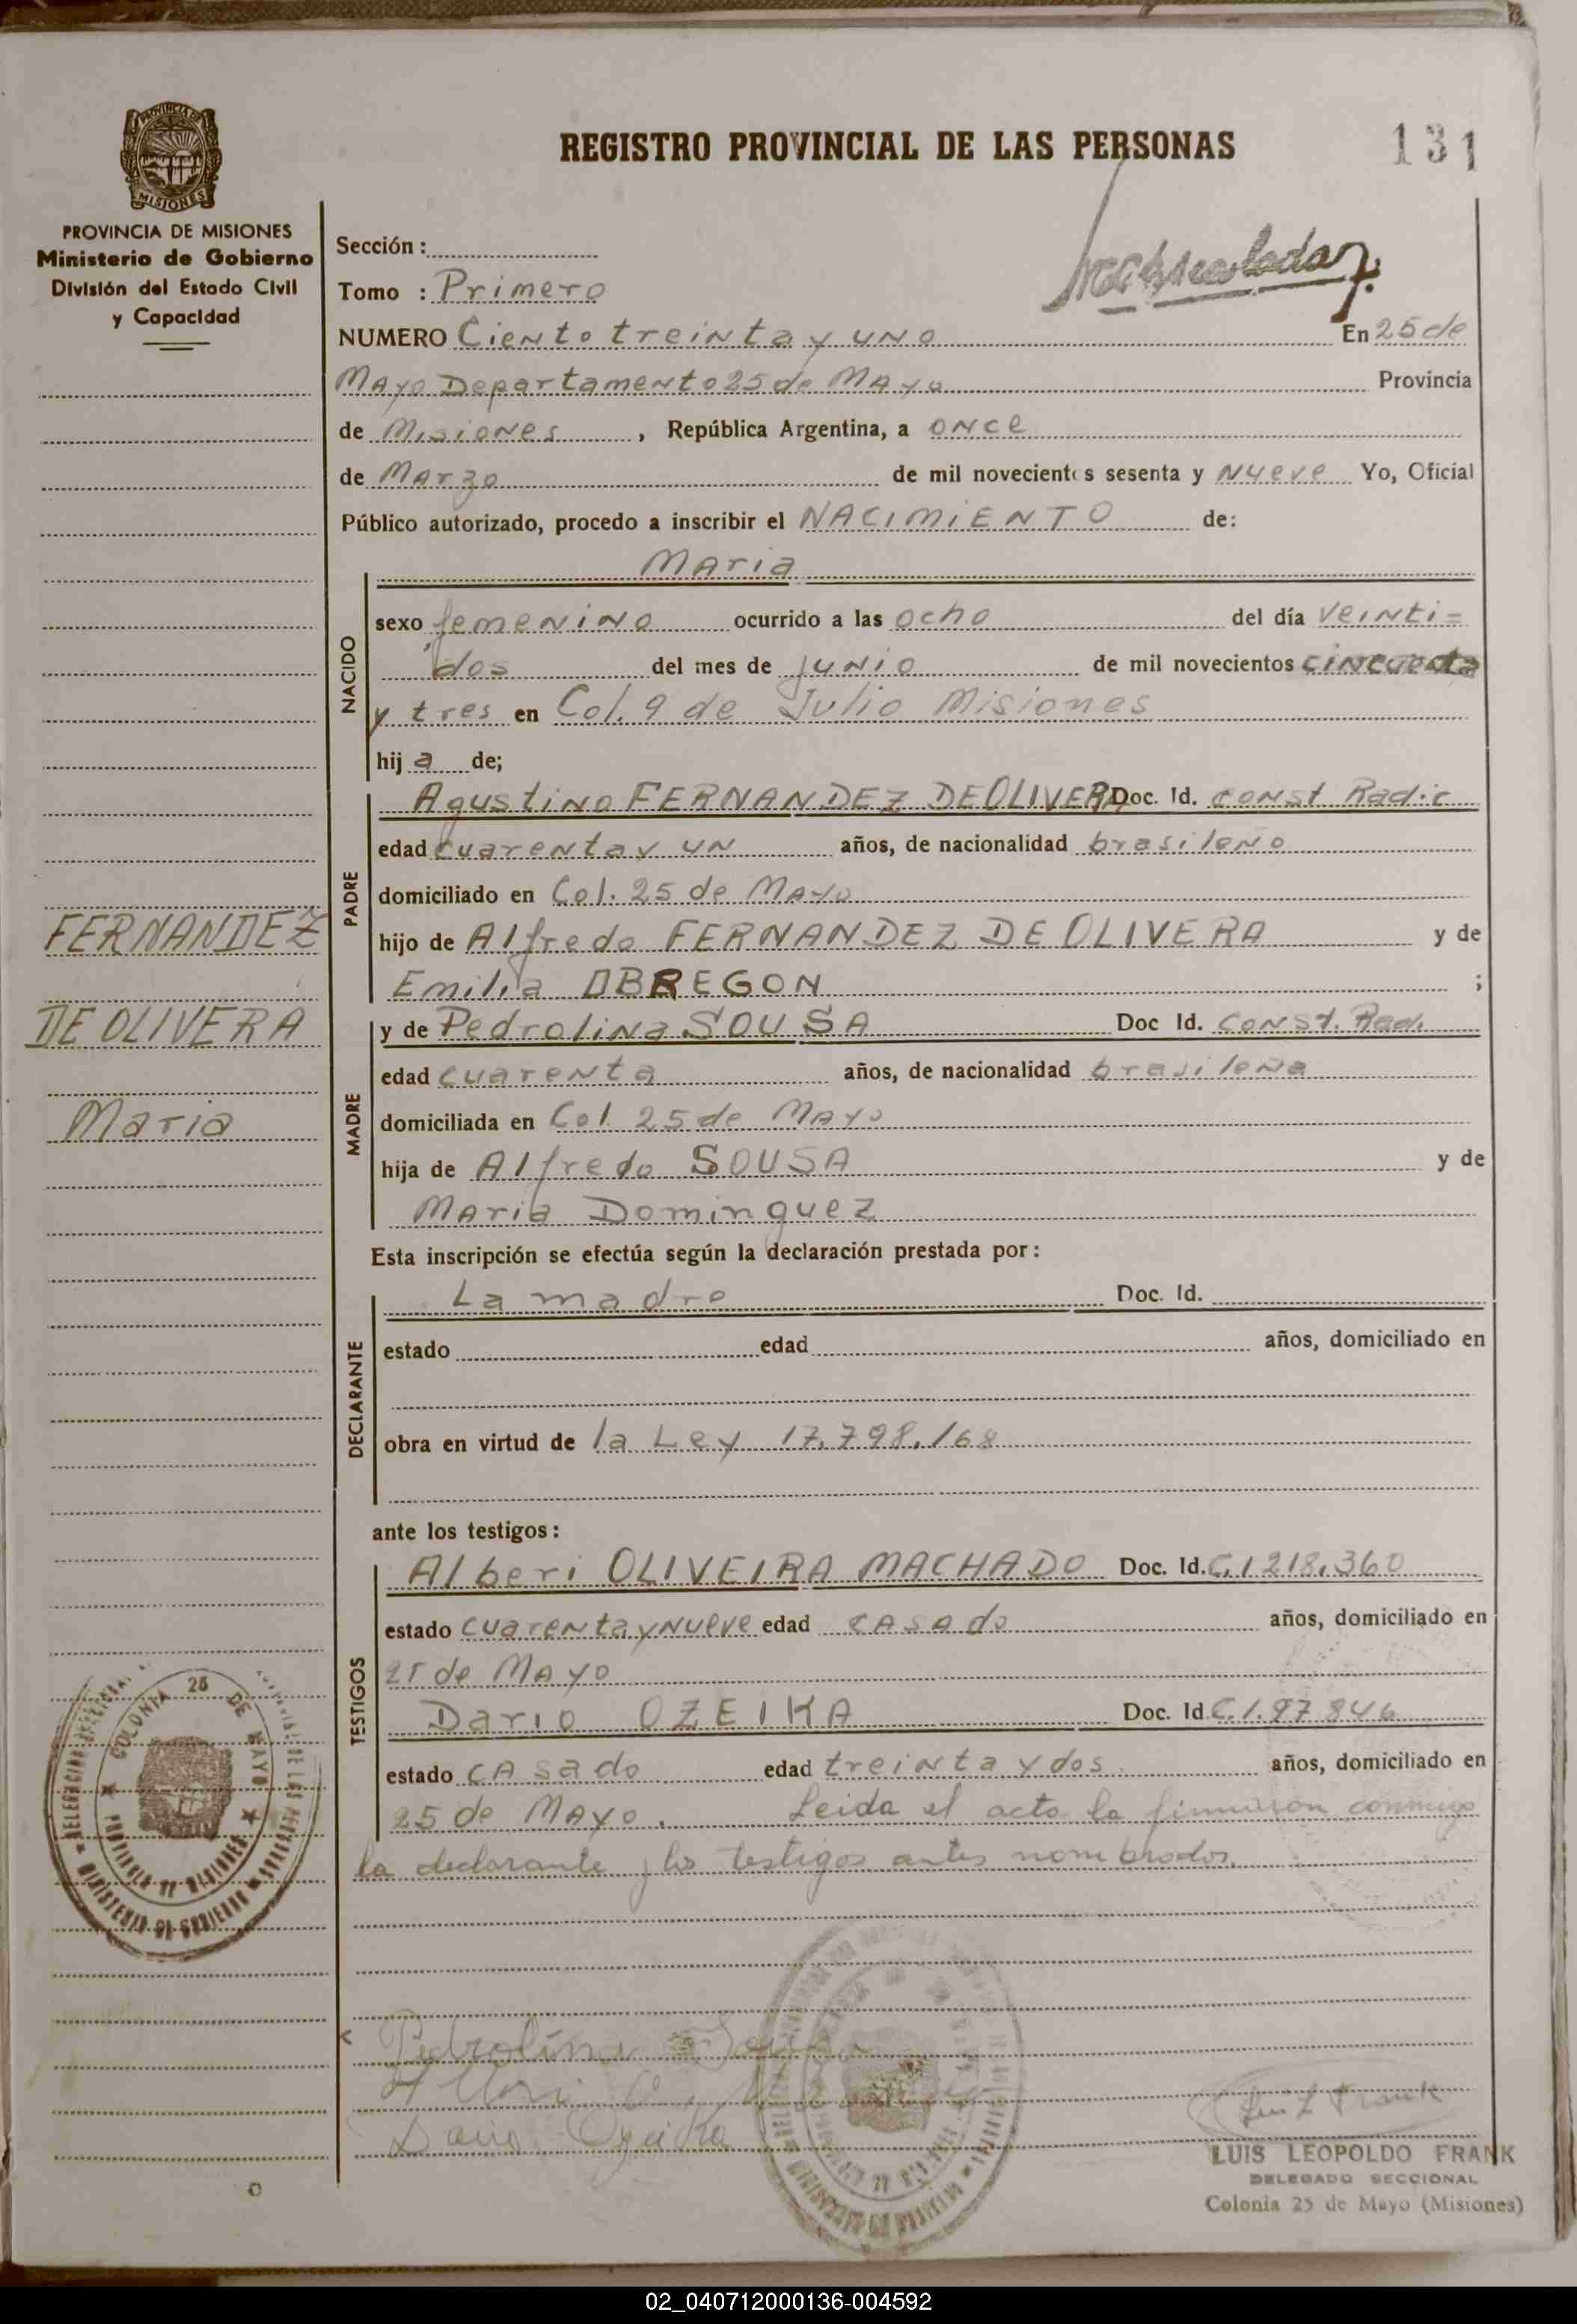 REGISTRO PROVINCIAL DE LAS PERSONAS
131
PROVINCIA DE
MISIONES
PROVINCIA DE MISIONES
Ministerio de Gobierno
División del Estado Civil
y Capacidad
Sección :
Tomo : Primero
NUMERO Ciento treinta y uno En 25 de
Mayo Departamento 25 de Mayo Provincia
de Misiones , República Argentina, a once
de Marzo de mil novecientos sesenta y nueve Yo, Oficial
Público autorizado, procedo a inscribir el NACIMIENTO de:
Maria
NACIDO
sexo femenino ocurrido a las ocho del día veinti=
dos del mes de junio de mil novecientos cincuenta
y tres en Col. 9 de Julio Misiones
hij a de;
PADRE
Agustino FERNANDEZ DE OLIVERA Doc. Id. const Radic
edad cuarenta y un años, de nacionalidad brasileño
domiciliado en Col. 25 de Mayo
hijo de Alfredo FERNANDEZ DE OLIVERA y de
Emilia OBREGON ;
FERNANDEZ
DE OLIVERA
Maria
MADRE
y de Pedrolina SOUSA Doc Id. const. Rad.
edad cuarenta años, de nacionalidad brasileña
domiciliada en Col. 25 de Mayo
hija de Alfredo SOUSA y de
Maria Dominguez
Esta inscripción se efectúa según la declaración prestada por :
DECLARANTE
La madre Doc. Id.
estado edad años, domiciliado en
obra en virtud de la Ley 17.798./68
ante los testigos :
TESTIGOS
Alberi OLIVEIRA MACHADO Doc. Id. C.I 218.360
estado cuarenta y nueve edad casado años, domiciliado en
25 de Mayo
Dario OZEIKA Doc. Id C.I. 97 846
estado casado edad treinta y dos. años, domiciliado en
25 de Mayo. Leida el acta la firmaron conmigo
la declarante y los testigos antes nombrados.
COLONIA 25 DE MAYO
PROVINCIA DE MISIONES
MINISTERIO DE GOBIERNO
Pedrolina Sousa
Dario Ozeika
Luis L Frank
LUIS LEOPOLDO FRANK
DELEGADO SECCIONAL
Colonia 25 de Mayo (Misiones)
02_040712000136-004592